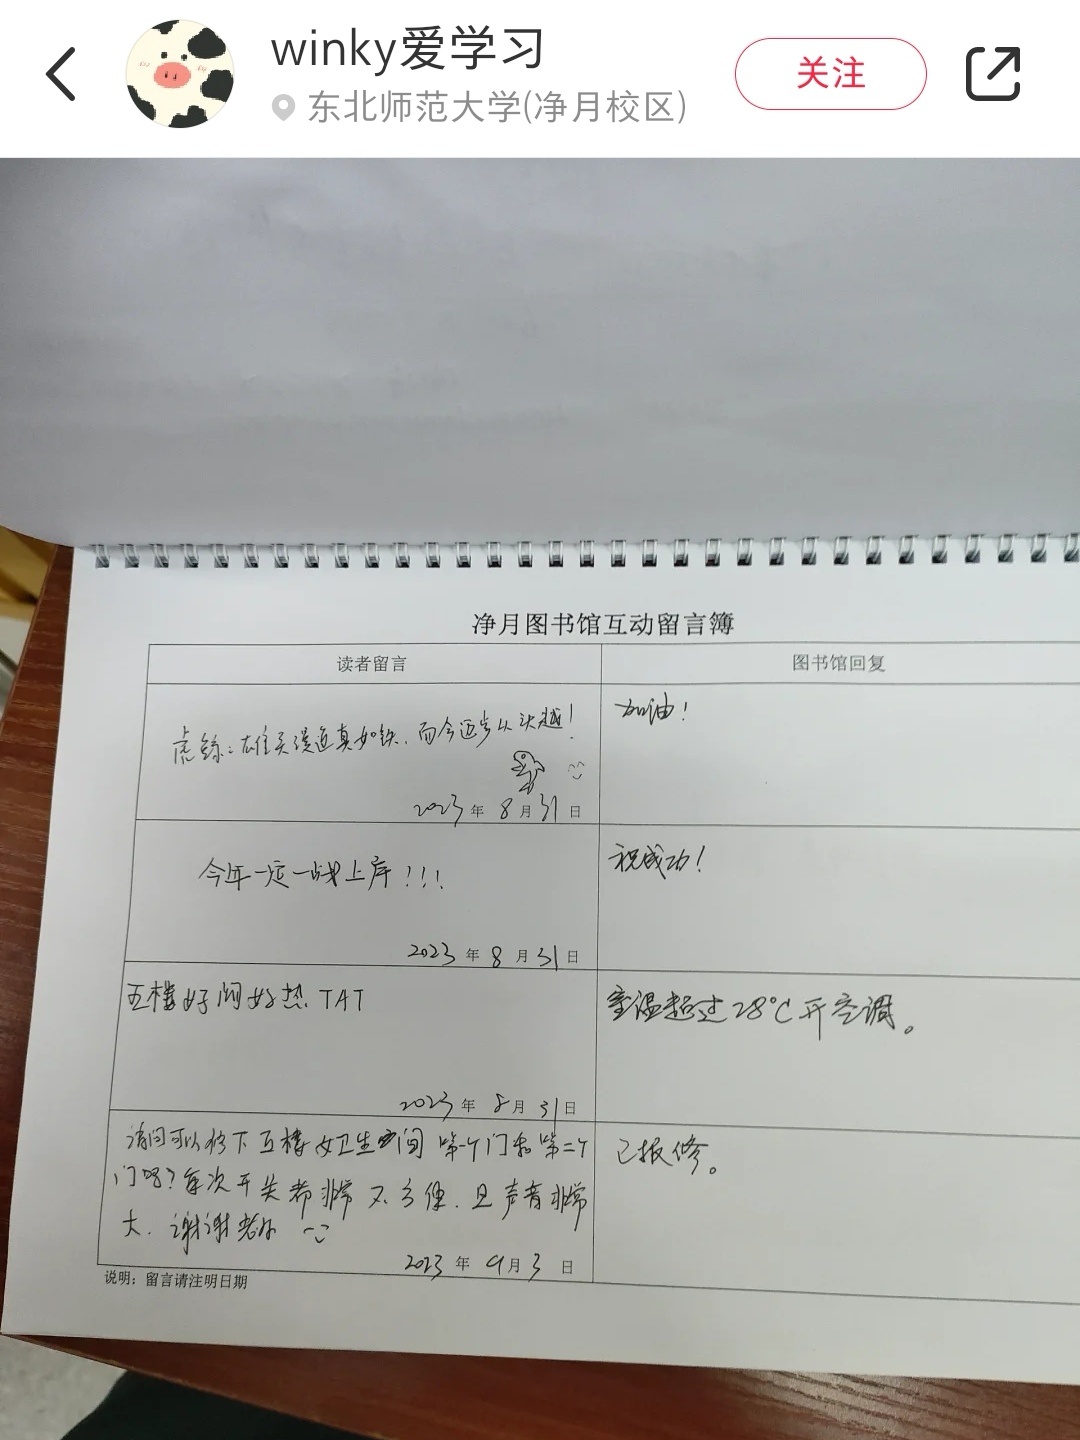 winky爱学习
关注
东北师范大学(净月校区)
净月图书馆互动留言簿
读者留言
图书馆回复
虎鲸：雄关漫道真如铁，而今迈步从头越！
2023年8月31日
加油！
今年一定一战上岸！！！
2023年8月31日
祝成功！
五楼好闷好热 TAT
2023年8月31日
室温超过28℃开空调。
请问可以修下五楼女卫生间 第一个门和第二个
门吗？每次开关都非常不方便．且声音非常
大．谢谢老师
2023年9月3日
已报修。
说明：留言请注明日期